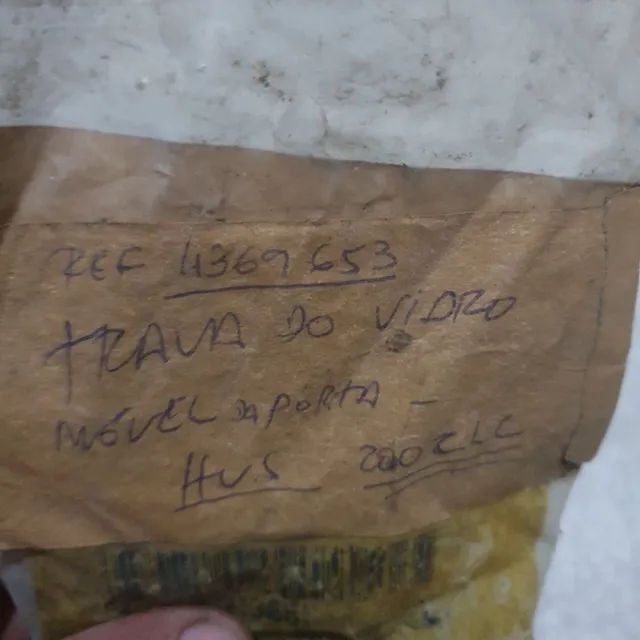 REF 4369653
TRAVA DO VIDRO
MÓVEL DA PORTA -
HUS 200 CLC